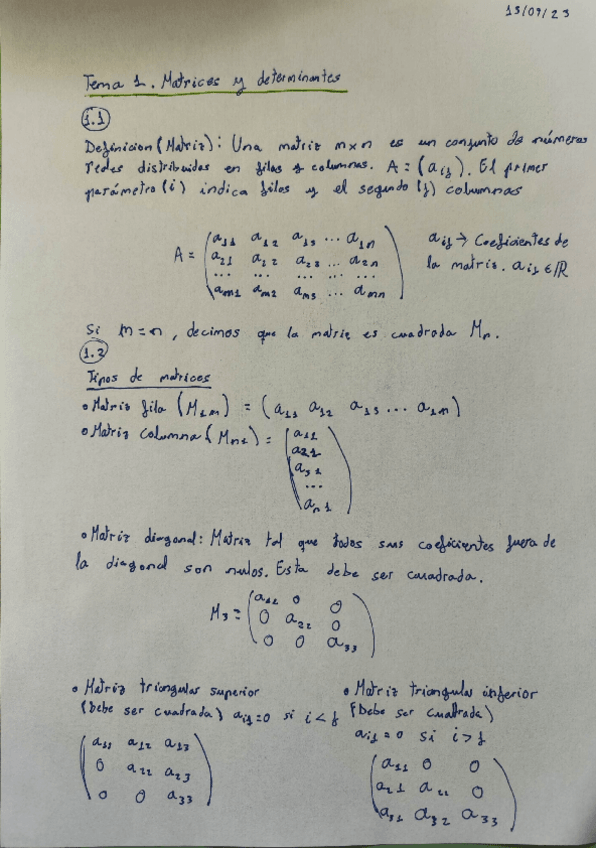 15/09/23
Tema 1. Matrices y determinantes
1.1
Definicion (Matriz): Una matriz m×n es un conjunto de números
reales distribuidos en filas y columnas. A = (aij). El primer
parámetro (i) indica filas y el segundo (j) columnas
A = ( a11 a12 a13 ... a1n
a21 a22 a23 ... a2n
... ... ... ... ...
am1 am2 am3 ... amn )
aij → Coeficientes de
la matriz. aij ∈ ℝ
Si m = n, decimos que la matriz es cuadrada Mn.
1.2
Tipos de matrices
• Matriz fila (M1n) = (a11 a12 a13 ... a1n)
• Matriz columna (Mn1) = ( a11
a21
a31
...
an1 )
• Matriz diagonal: Matriz tal que todos sus coeficientes fuera de
la diagonal son nulos. Esta debe ser cuadrada.
M3 = ( a11 0 0
0 a22 0
0 0 a33 )
• Matriz triangular superior
(Debe ser cuadrada) aij=0 si i<j
( a11 a12 a13
0 a22 a23
0 0 a33 )
• Matriz triangular inferior
(Debe ser cuadrada)
aij = 0 si i>j
( a11 0 0
a21 a22 0
a31 a32 a33 )